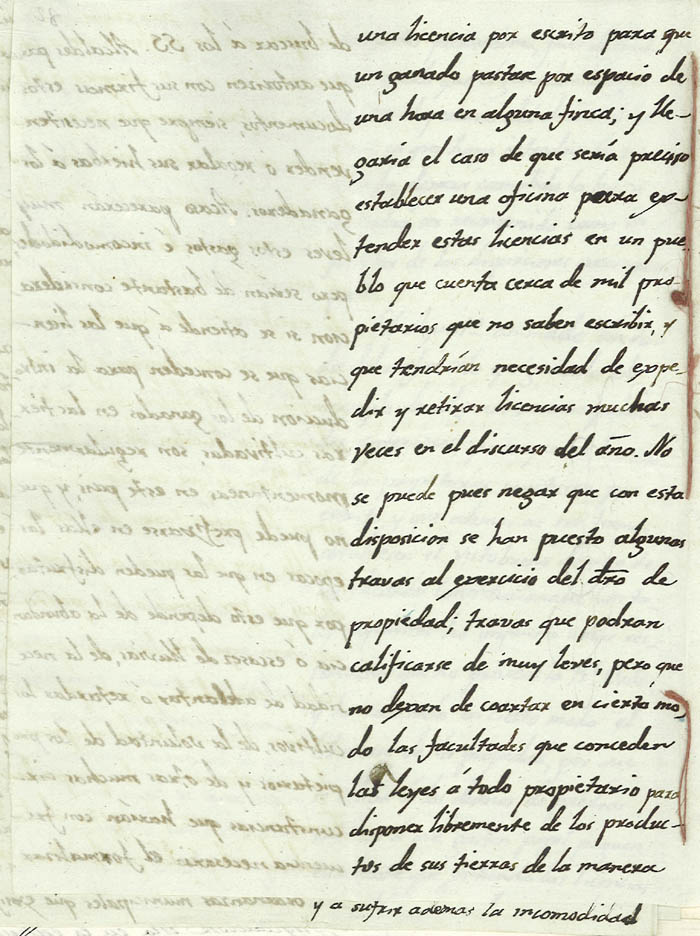 una licencia por escrito para que
un ganado pastar por espacio de
una hora en alguna finca; y lle-
garia el caso de que sería preciso
establecer una oficina para ex-
tender estas licencias en un pue-
blo que cuenta cerca de mil pro-
pietarios que no saben escribir, y
que tendrían necesidad de expe-
dir y retirar licencias muchas
veces en el discurso del año. No
se puede pues negar que con esta
disposicion se han puesto algunas
travas al exercicio del dro de
propiedad; travas que podran
calificarse de muy leves, pero que
no dexan de coartar en cierto mo-
do las facultades que conceden
las leyes á todo propietario para
disponer libremente de los produc-
tos de sus tierras de la manera
y a sufrir ademas la incomodidad